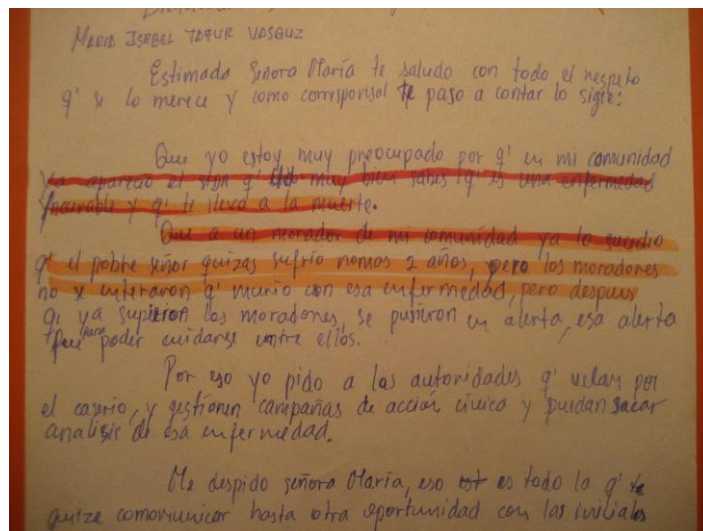 MARIA ISABEL TAFUR VASQUZ
Estimada Señora María te saludo con todo el respeto
q' se lo merece y como corresponsal te paso a contar lo sigte:
Que yo estoy muy preocupado por q' en mi comunidad
ya aparecio el sida q' muy bien sabes q' es una enfermedad
incurable y q' te lleva a la muerte.
Que a un morador de mi comunidad ya lo sucedio
q' el pobre señor quizas sufrío nomas 2 años, pero los moradores
no se enteraron q' murio con esa enfermedad, pero despues
q' ya supieron los moradores, se pusieron en alerta, esa alerta
fue para poder cuidarse entre ellos.
Por eso yo pido a las autoridades q' velam por
el caserio, y gestionen campañas de acción cívica y puedan sacar
analisis de esa enfermedad.
Me despido señora María, eso es todo lo q' te
quize comonunicar hasta otra oportunidad con las iniciales